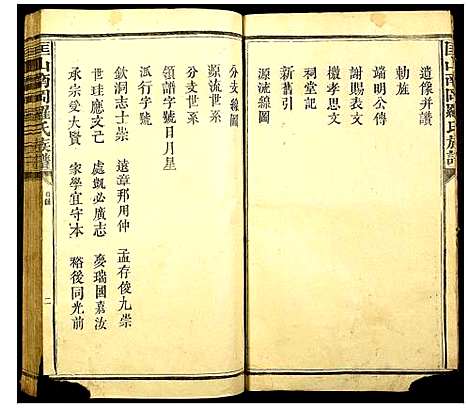 匡山南岡羅氏族譜
遺像并讚
勅旌
端明公傳
謝賜表文
櫬孝思文
祠堂記
新舊引
源流線圖
分支線圖
源流世系
分支世系
領譜字號日月星
派行字號
欽洞志士崇 遠章邦用仲 孟存俊九崇
世珪應文志 處凱必廣志 夢瑞國嘉汝
承宗愛大賢 家學宜守本 裕後同光前
匡山南岡羅氏族譜
目錄
二